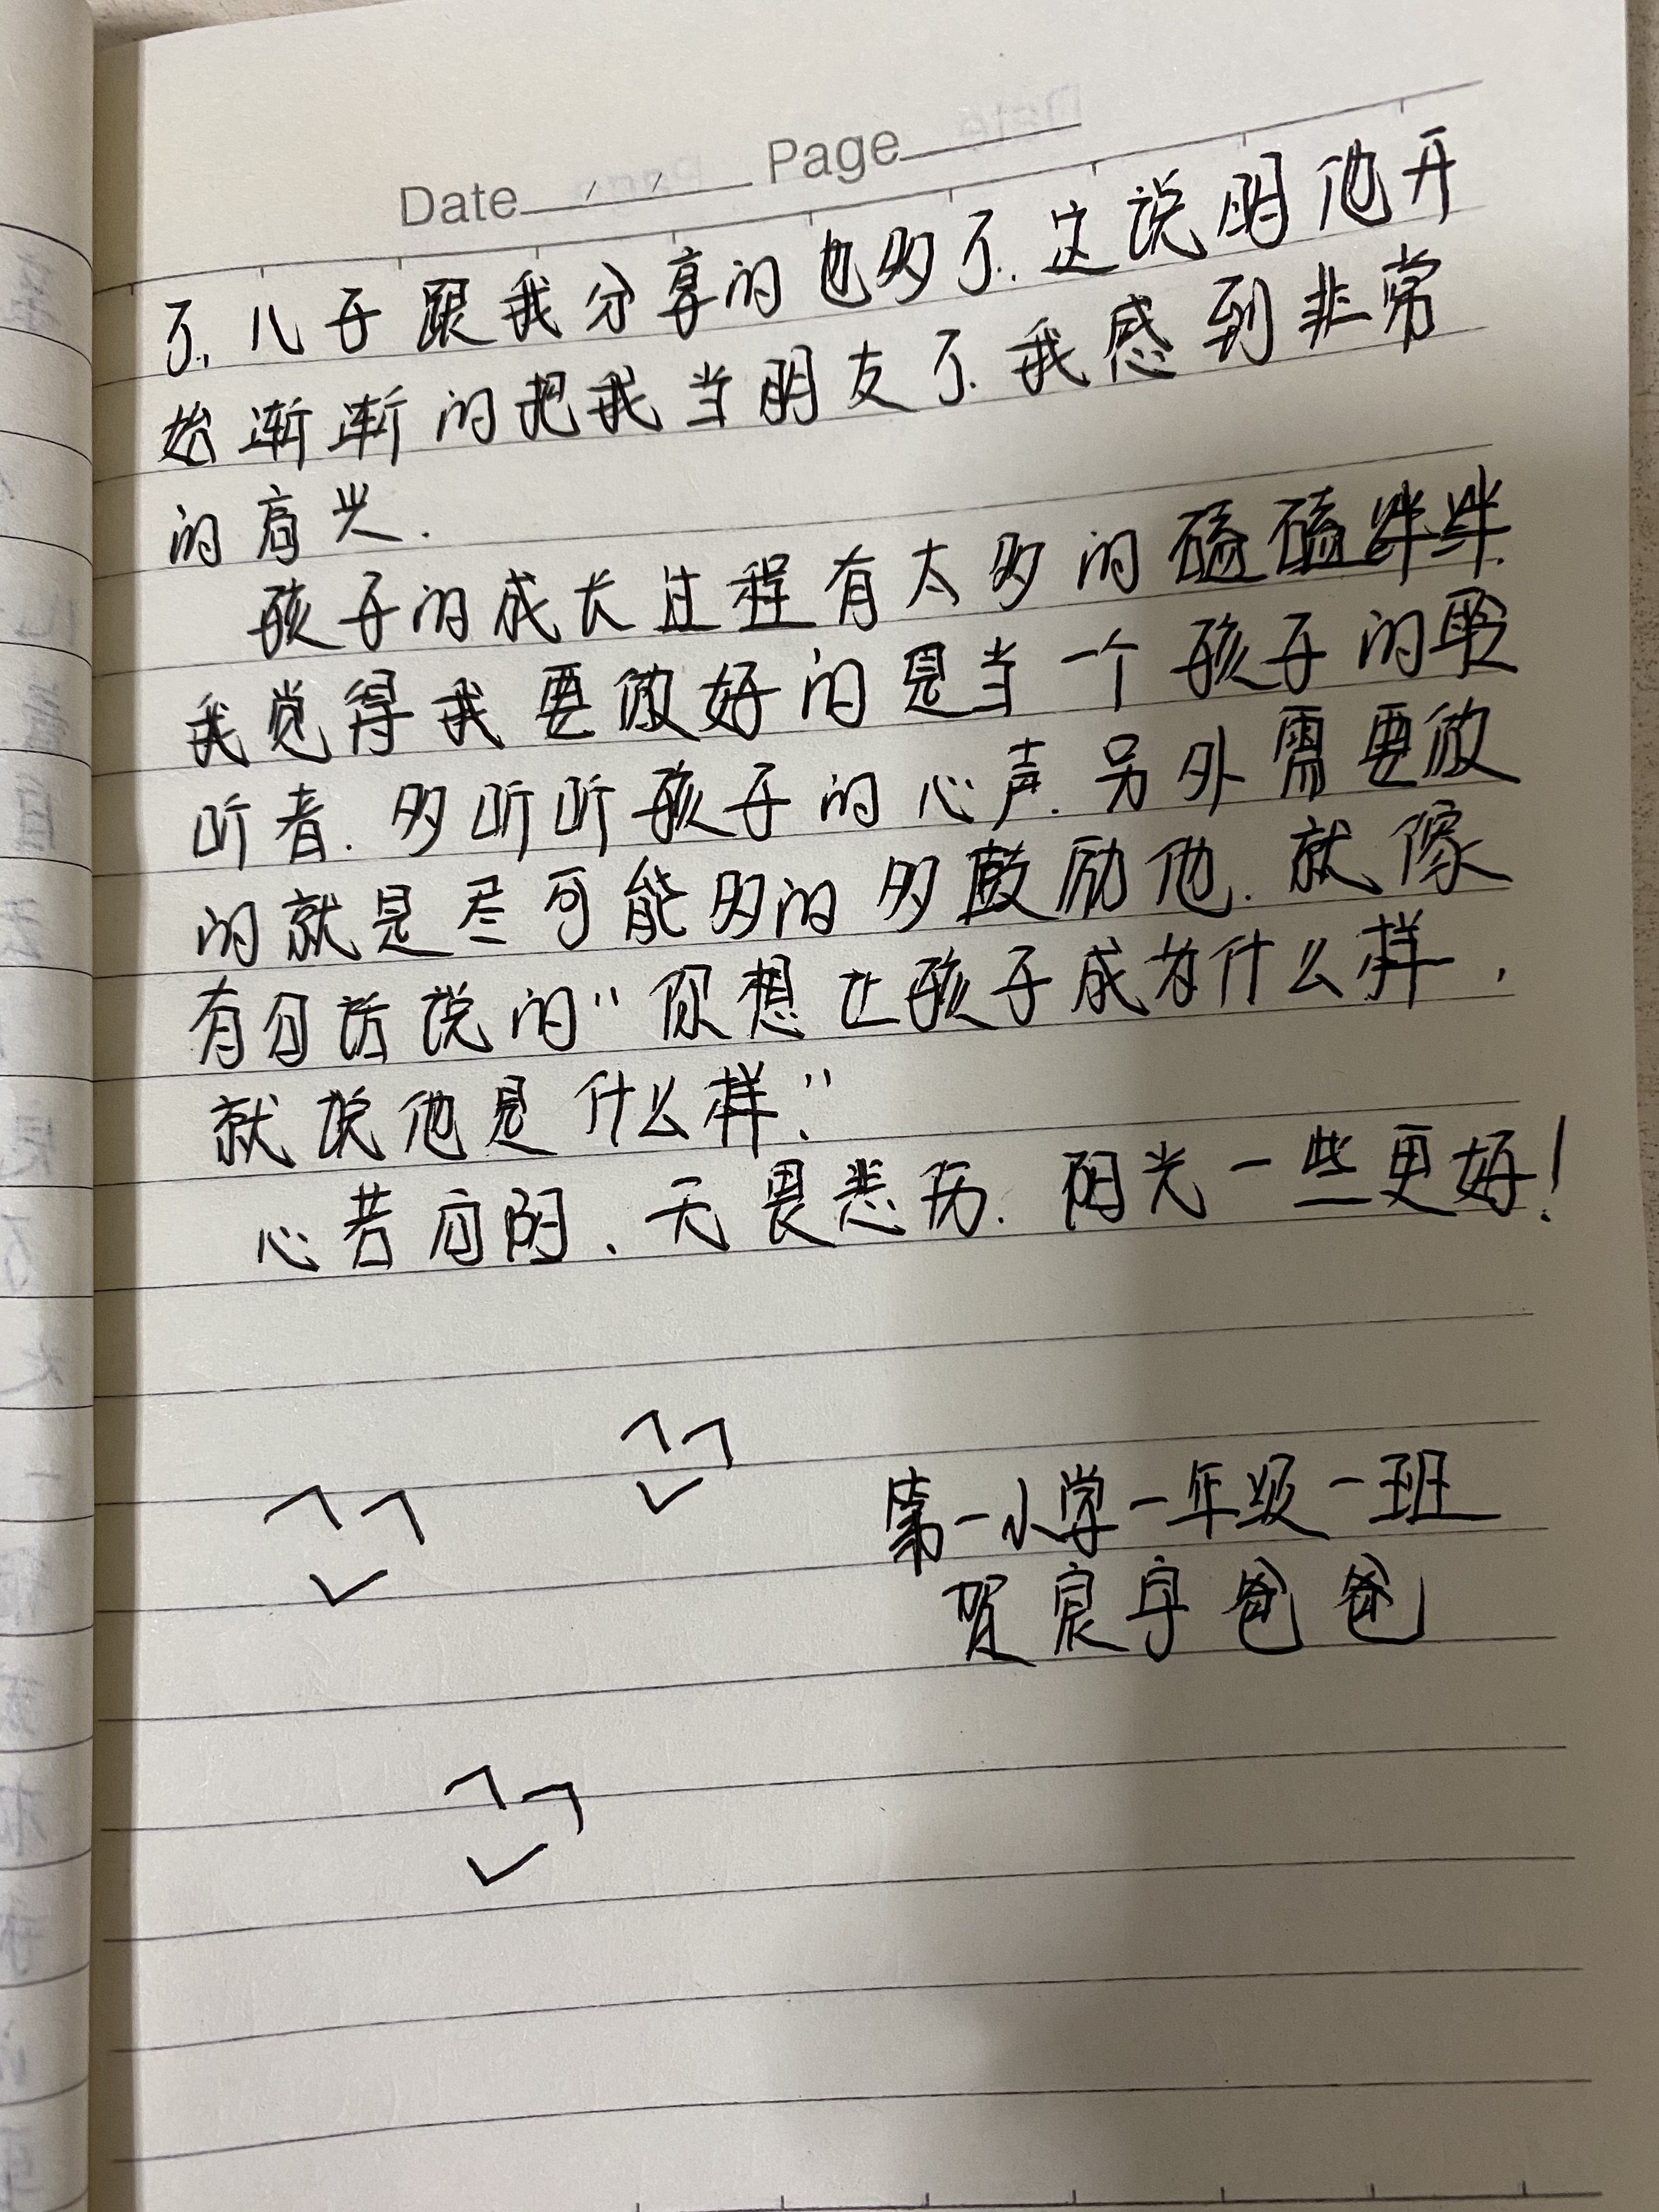 Date / / Page
了,儿子跟我分享的也多了.这说明他开
始渐渐的把我当朋友了.我感到非常
的高兴.
孩子的成长过程有太多的磕磕绊绊.
我觉得我要做好的是当一个孩子的聆
听者.多听听孩子的心声.另外需要做
的就是尽可能多的多鼓励他.就像
有句话说的"你想让孩子成为什么样,
就说他是什么样."
心若向阳、无畏悲伤.阳光一些更好!
第一小学一年级一班
贺宸宇爸爸